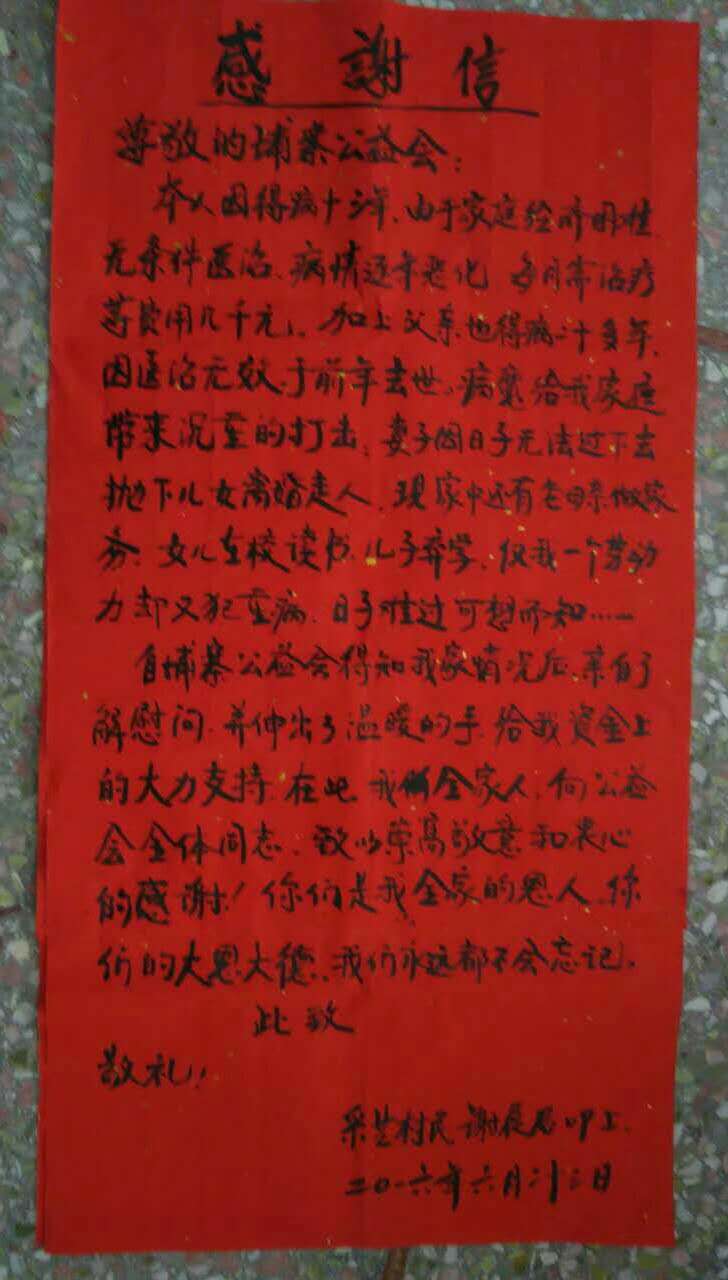 感謝信
尊敬的埔寨公益会：
本人因得病十三年、由于家庭经济困难
无条件医治、病情逐年老化 每月需治疗
等费用几千元、加上父亲也得病二十多年、
因医治无效、于前年去世。病魔给我家庭
带来沉重的打击、妻子因日子无法过下去
抛下儿女离婚走人、现家中还有老母亲做家
务、女儿在校读书、儿子弃学、仅我一个劳动
力却又犯重病、日子难过可想而知……
自埔寨公益会得知我家情况后、亲自了
解慰问、并伸出了温暖的手、给我资金上
的大力支持、在此、我们全家人、向公益
会全体同志、致以崇高敬意和衷心
的感谢！你们是我全家的恩人、你
们的大恩大德、我们永远都不会忘记。
此致
敬礼！
村民 谢 叩上
二〇一六年六月二十三日